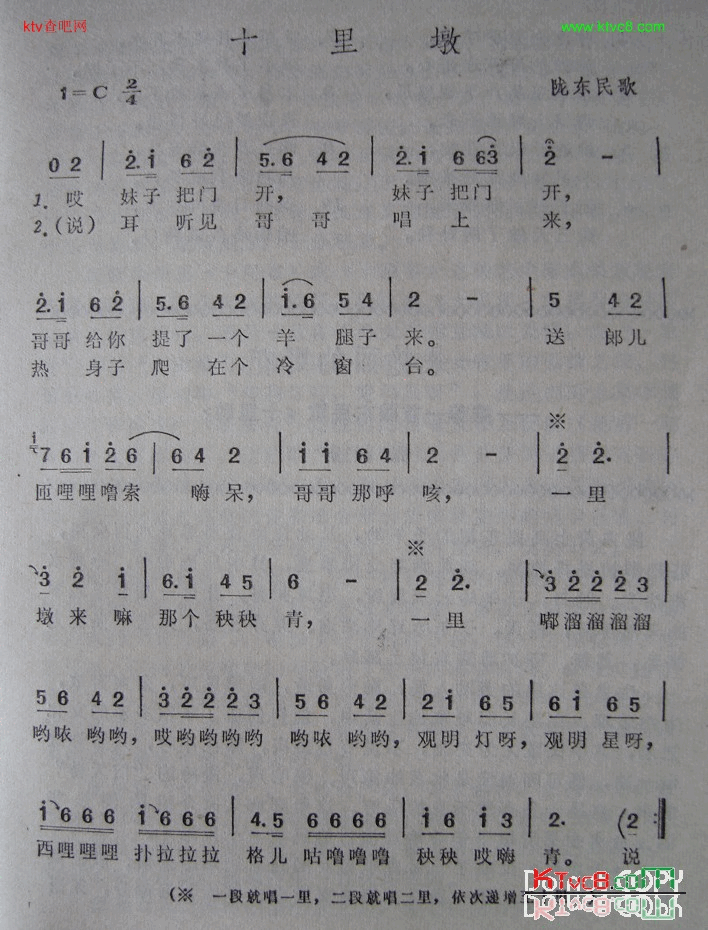 ktv查吧网
www.ktvc8.com
十里墩
1=C 2/4
陇东民歌
0 2 | 2. i 6 2 | 5. 6 4 2 | 2. i 6 63 | 2 − |
1. 哎 妹子把门 开, 妹子把门 开,
2.(说) 耳 听见 哥哥 唱上 来,
2. i 6 2 | 5. 6 4 2 | i. 6 5 4 | 2 − | 5 4 2 |
哥哥给你 提了一个 羊 腿子来。 送 郎儿
热 身子 爬在个冷窗 台。
7 6 i 2 6 | 6 4 2 | i i 6 4 | 2 − | ※ 2 2. |
匝哩哩噜索 嗨呆, 哥哥那呼 咳, 一里
3 2 i | 6. i 4 5 | 6 − | ※ 2 2. | 3 2 2 2 3 |
墩来嘛 那个秧秧 青, 一里 嘟溜溜溜溜
5 6 4 2 | 3 2 2 2 3 | 5 6 4 2 | 2 i 6 5 | 6 i 6 5 |
哟哝哟哟, 哎哟哟哟哟 哟哝哟哟, 观明灯呀, 观明星呀,
i 6 6 6 i 6 6 6 | 4. 5 6 6 6 6 | i 6 i 3 | 2. (2 :|
西哩哩哩 扑拉拉拉 格儿咕噜噜噜 秧秧哎嗨 青。 说
(※ 一段就唱一里,二段就唱二里,依次递增
KTvc8.com